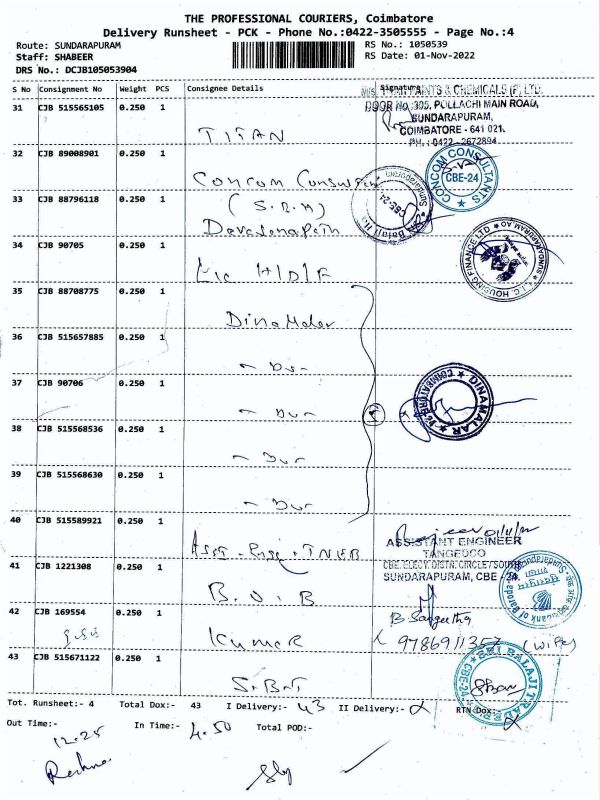 THE PROFESSIONAL COURIERS, Coimbatore
Delivery Runsheet - PCK - Phone No.:0422-3505555 - Page No.:4
Route: SUNDARAPURAM
RS No.: 1050539
Staff: SHABEER
RS Date: 01-Nov-2022
DRS No.: DCJB105053904
S No Consignment No Weight PCS Consignee Details Signature
PAINTS & CHEMICALS (P) LTD.
31 CJB 515565105 0.250 1
DOOR No. 305, POLLACHI MAIN ROAD,
SUNDARAPURAM,
TITAN
COIMBATORE - 641 021.
PH.: 0422 - 2672894
32 CJB 89008901 0.250 1
CONCOM CONSULTANTS
CBE-24
Concom
33 CJB 88796118 0.250 1
(S.R.M)
34 CJB 90705 0.250 1
L.I.C. HOUSING FINANCE LTD
Lic HDF
35 CJB 88708775 0.250 1
DinaMalar
36 CJB 515657885 0.250 1
37 CJB 90706 0.250 1
DINAMALAR
COIMBATORE
38 CJB 515568536 0.250 1
39 CJB 515568630 0.250 1
40 CJB 515589921 0.250 1
ASSISTANT ENGINEER
TANGEDCO
Asst. Engr. TNEB
CBE ELECY. DISTN. CIRCLE/SOUTH
41 CJB 1221308 0.250 1
SUNDARAPURAM, CBE - 24.
Bank of Baroda
B.O.B
42 CJB 169554 0.250 1
B Sangeetha
Kumar
9786911357 (Wife)
43 CJB 515671122 0.250 1
SRI BALAJI TRADERS
CBE-24
Tot. Runsheet:- 4 Total Dox:- 43 I Delivery:- 43 II Delivery:- RTN Dox:-
Out Time:- 12.25 In Time:- 4.50 Total POD:-